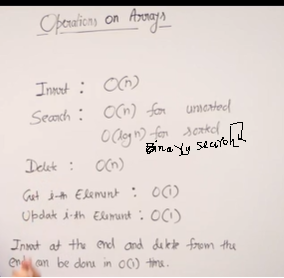 Operations on Arrays
Insert : O(n)
Search : O(n) for unsorted
O(log n) for sorted
Binary search
Delete : O(n)
Get i-th Element : O(1)
Update i-th Element : O(1)
Insert at the end and delete from the
end can be done in O(1) time.